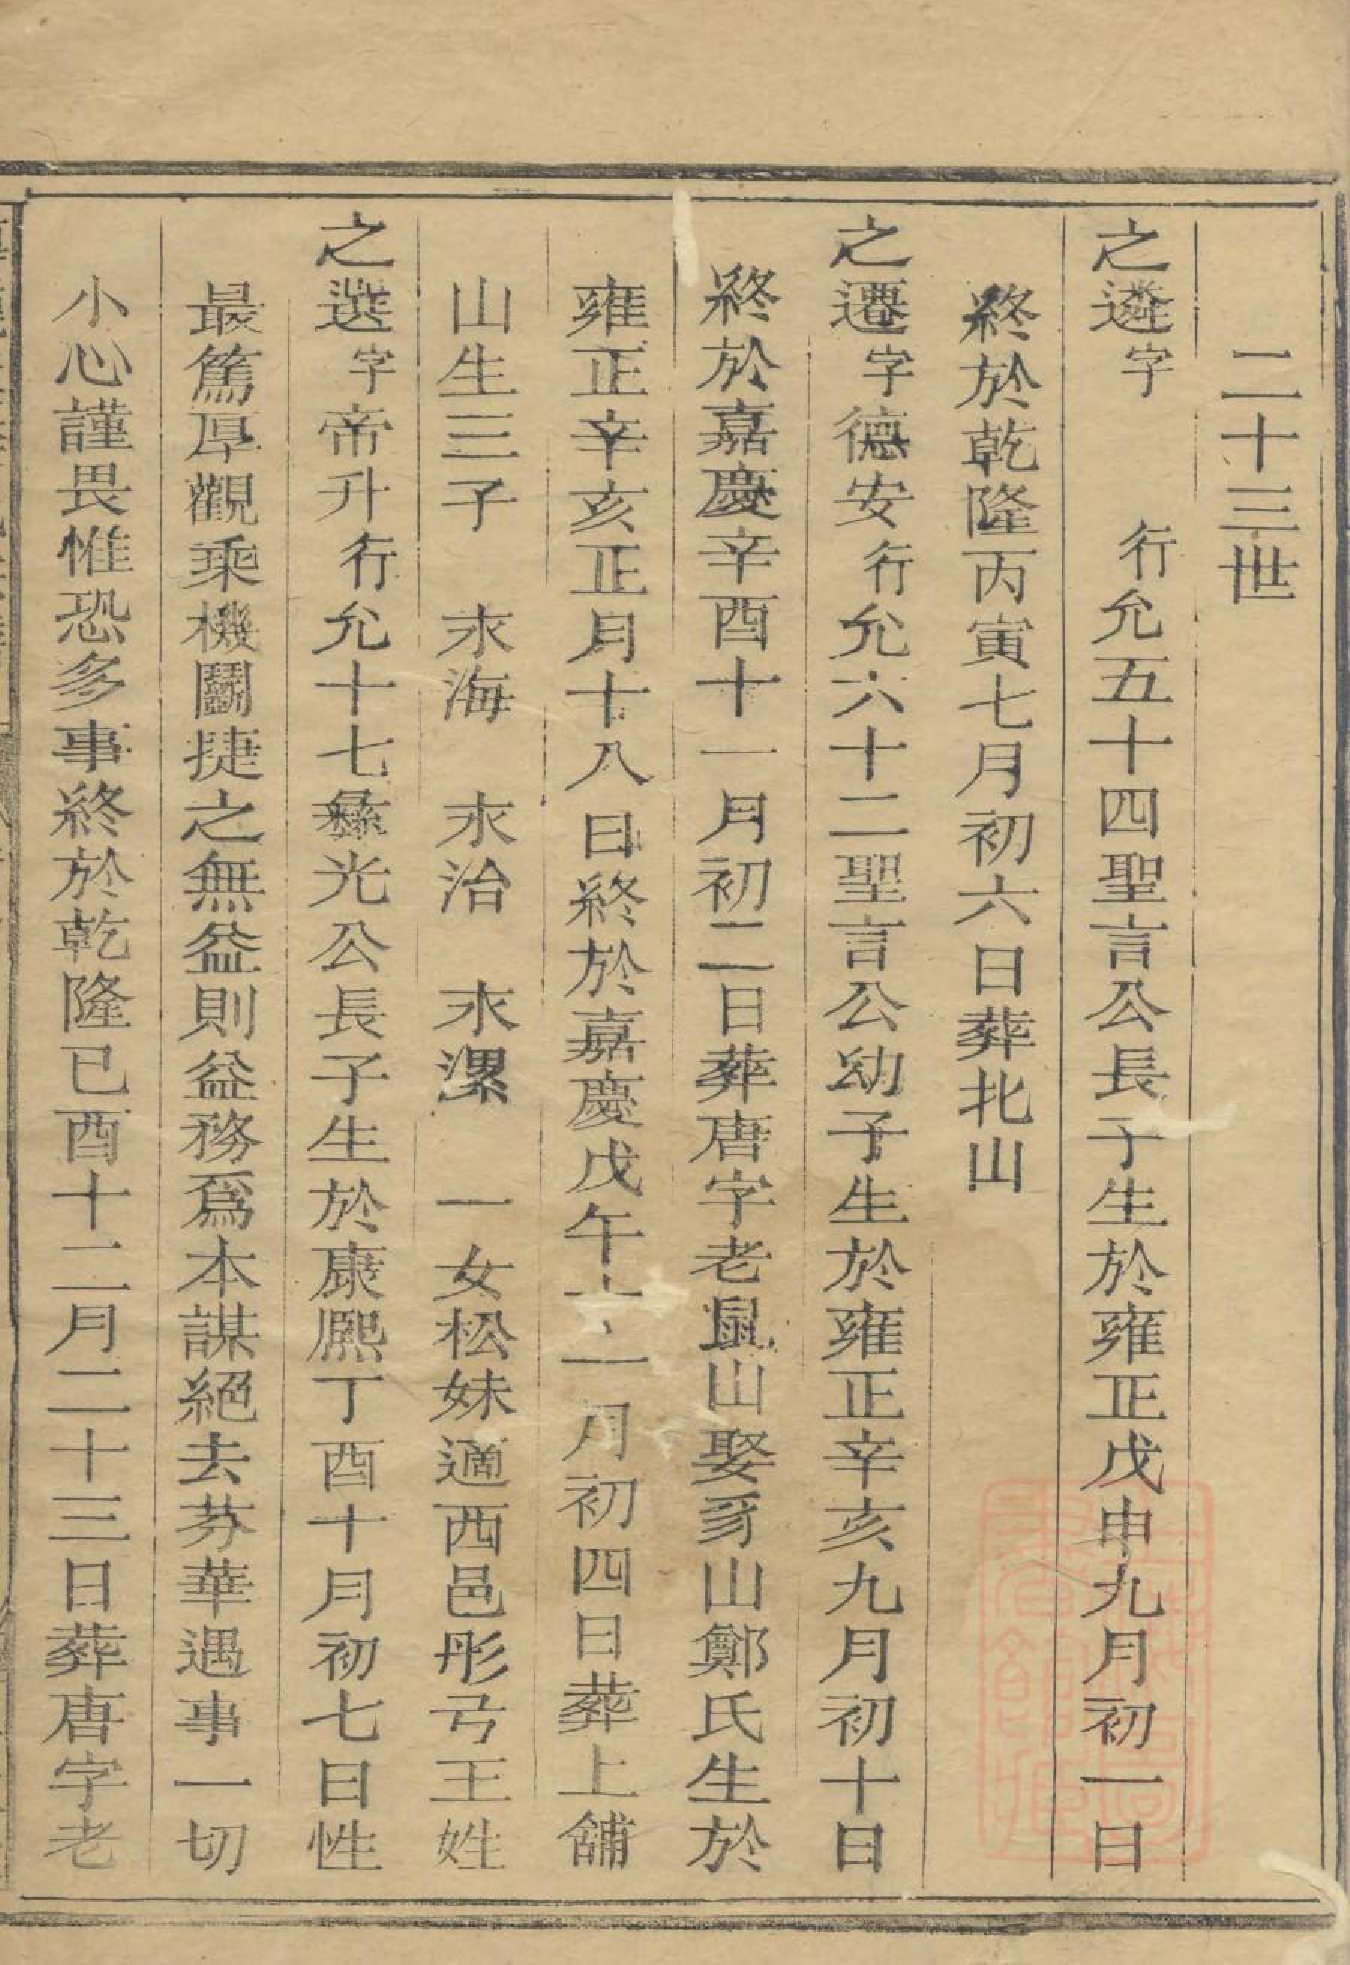 二十三世
之遴字　行允五十四聖言公長子生於雍正戊申九月初一日
終於乾隆丙寅七月初六日葬北山
之遷字德安行允六十二聖言公幼子生於雍正辛亥九月初十日
終於嘉慶辛酉十一月初二日葬唐字老鼠山娶豸山鄭氏生於
雍正辛亥正月十八日終於嘉慶戊午十二月初四日葬上舖
山生三子　求海　求治　求漯　一女松妹適西邑彤弓王姓
之選字帝升行允十七彝光公長子生於康熈丁酉十月初七日性
最篤厚觀乘機鬭捷之無益則益務爲本謀絕去芬華遇事一切
小心謹畏惟恐多事終於乾隆已酉十二月二十三日葬唐字老